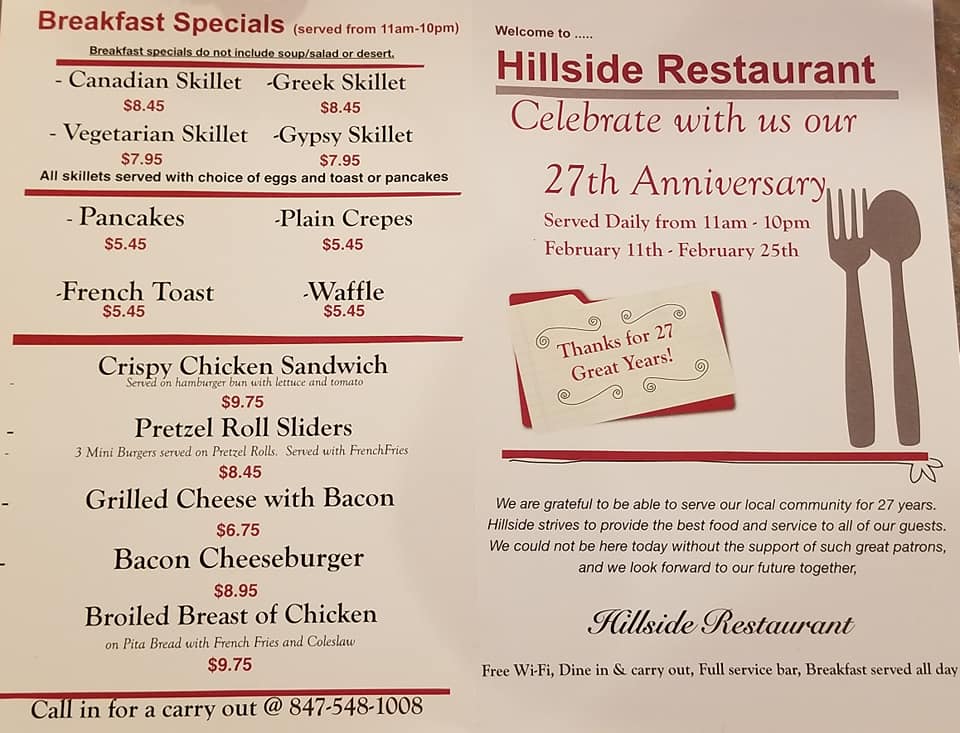 Breakfast Specials (served from 11am-10pm)
Breakfast specials do not include soup/salad or desert.
- Canadian Skillet -Greek Skillet
$8.45 $8.45
- Vegetarian Skillet -Gypsy Skillet
$7.95 $7.95
All skillets served with choice of eggs and toast or pancakes
- Pancakes -Plain Crepes
$5.45 $5.45
-French Toast -Waffle
$5.45 $5.45
Crispy Chicken Sandwich
Served on hamburger bun with lettuce and tomato
$9.75
Pretzel Roll Sliders
3 Mini Burgers served on Pretzel Rolls. Served with FrenchFries
$8.45
Grilled Cheese with Bacon
$6.75
Bacon Cheeseburger
$8.95
Broiled Breast of Chicken
on Pita Bread with French Fries and Coleslaw
$9.75
Call in for a carry out @ 847-548-1008
Welcome to .....
Hillside Restaurant
Celebrate with us our
27th Anniversary
Served Daily from 11am - 10pm
February 11th - February 25th
Thanks for 27
Great Years!
We are grateful to be able to serve our local community for 27 years.
Hillside strives to provide the best food and service to all of our guests.
We could not be here today without the support of such great patrons,
and we look forward to our future together,
Hillside Restaurant
Free Wi-Fi, Dine in & carry out, Full service bar, Breakfast served all day